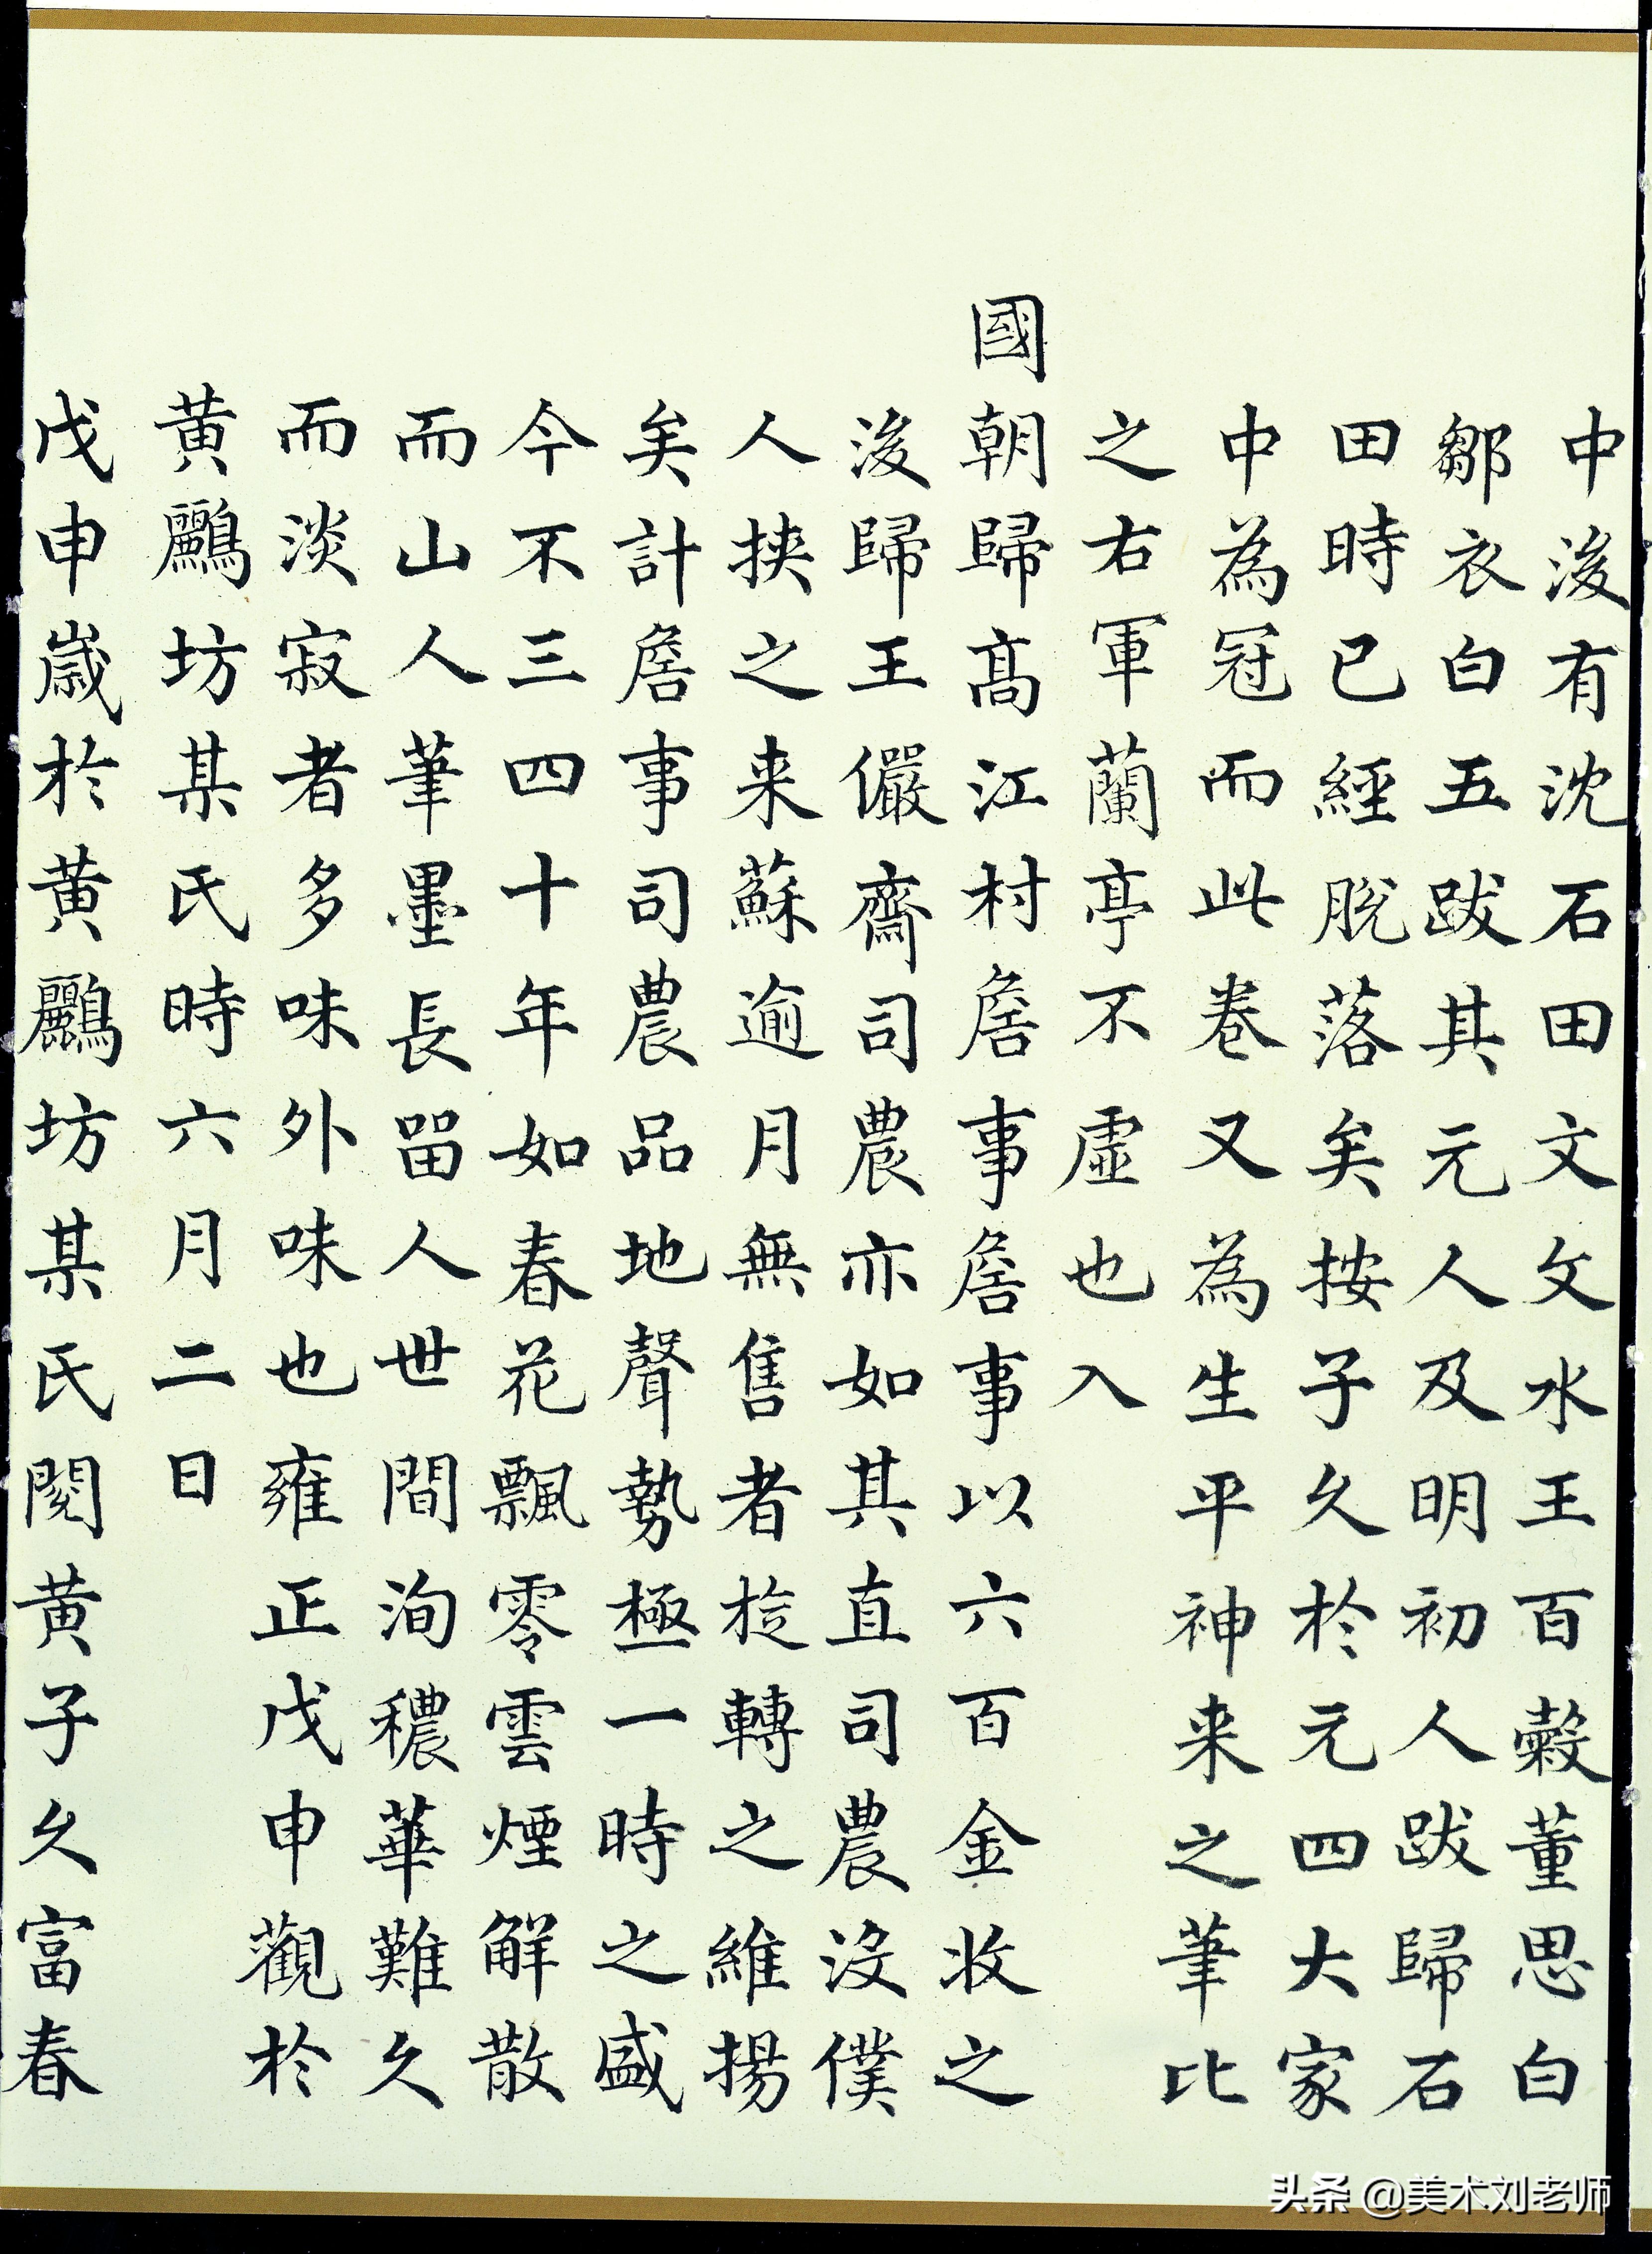 中後有沈石田文文水王百穀董思白
鄒衣白五跋其元人及明初人跋歸石
田時已經脫落矣按子久於元四大家
中為冠而此卷又為生平神来之筆比
之右軍蘭亭不虛也入
國朝歸高江村詹事詹事以六百金收之
後歸王儼齋司農亦如其直司農沒僕
人挾之来蘇逾月無售者旋轉之維揚
矣計詹事司農品地聲勢極一時之盛
今不三四十年如春花飄零雲煙解散
而山人筆墨長留人世間洵穠華難久
而淡寂者多味外味也雍正戊申觀於
黄鸝坊某氏時六月二日
戊申歲於黄鸝坊某氏閱黄子久富春
头条 @美术刘老师